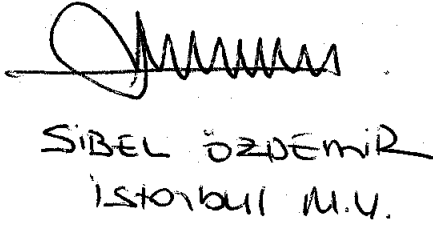 SİBEL ÖZDEMİR
İstanbul M.V.